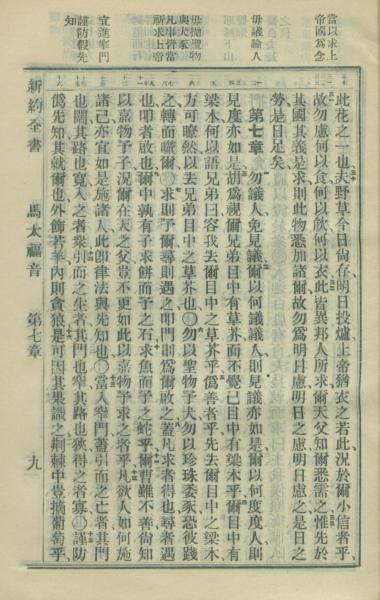 當以求上
帝國爲念
毋議論人
毋拋聖物
與犬豕
凡事皆當
祈求上帝
宜進窄門
謹防假先
知
此花之一也夫野草今日尚存明日投爐上帝猶衣之若此況於爾小信者乎
故勿慮何以食何以飲何以衣此皆異邦人所求爾天父知爾悉需之惟先於
其國其義是求則此物悉加諸爾故勿爲明日慮明日之慮明日慮之是日之
勞是日足矣
第七章 勿議人免見議爾以何議議人則見議亦如是爾以何度度人則
見度亦如是胡爲視爾兄弟目中有草芥而不覺己目中有梁木乎爾目中有
梁木何以語兄弟曰容我去爾目中之草芥乎僞善者乎先去爾目中之梁木
方可瞭然以去兄弟目中之草芥也○勿以聖物予犬勿以珍珠委豕恐彼踐
之轉而噬爾○求則予爾尋則遇之叩門則爲爾啟之蓋凡求者得也尋者遇
也叩者啟也爾中孰有子求餅而予之石求魚而予之蛇乎爾曹雖不善尚知
以嘉物予子況爾在天之父豈不更如此以嘉物予求之者乎凡欲人如何施
諸己亦宜如是施諸人此卽律法與先知也○當入窄門蓋引而之亡者其門
也闊其路也寬入之者衆引而之生者其門也窄其路也狹得之者寡○謹防
僞先知其就爾也外飾若羊內則貪狼是可因其果識之荆棘中豈摘葡萄乎
新約全書 馬太福音 第七章 九